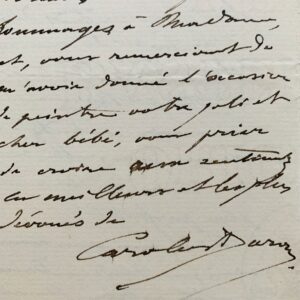 hommages à Madame,
et, vous remerciant de
m'avoir donné l'occasion
de peindre votre joli et
cher bébé, vous prier
de croire aux sentiments
les meilleurs et les plus
dévoués de
Carolus Duran